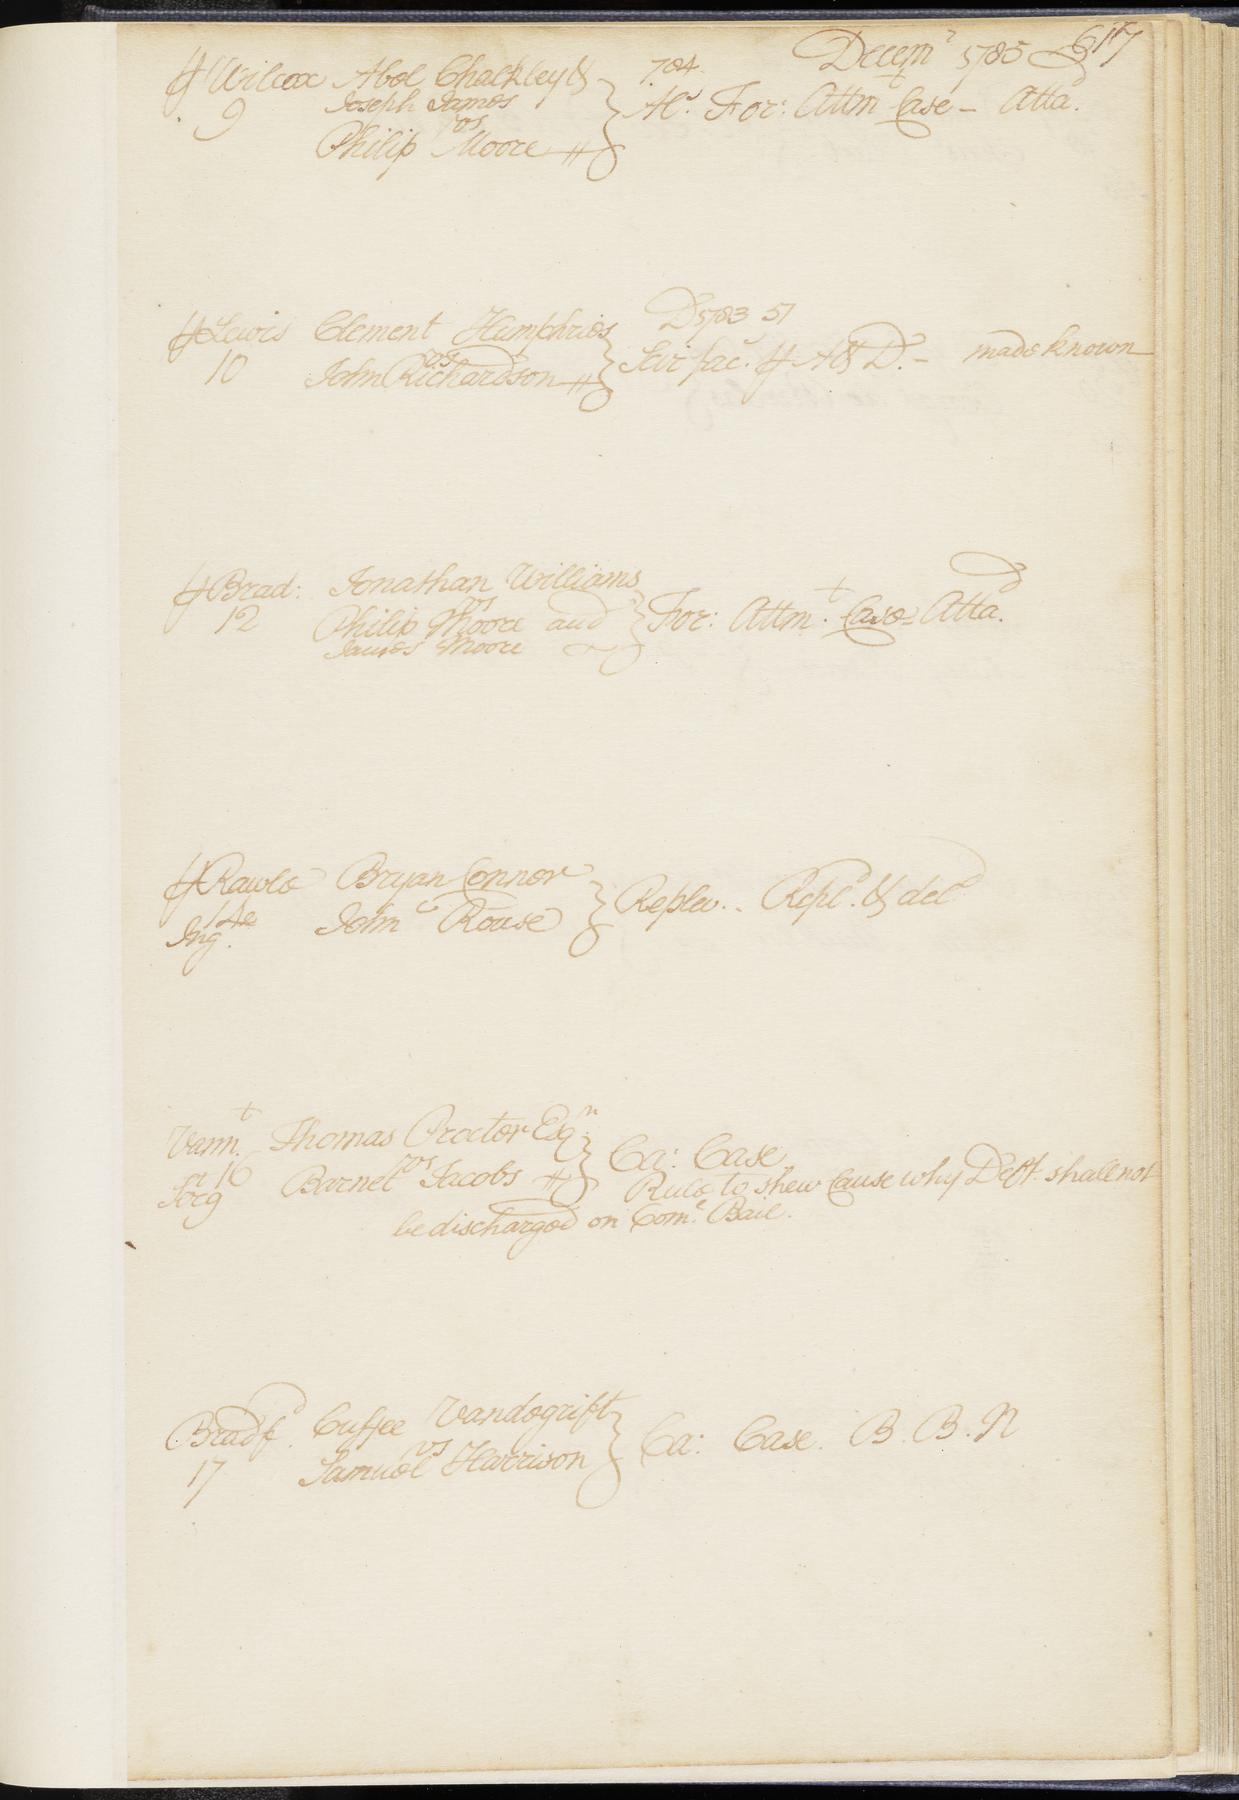 Decem.r 1785 617
Wilcox Abel Chalkley &
9 Joseph James
vs
Philip Moore
704.
Al.s For: Attm.t Case - Atta.d
Lewis Clement Humphries
10 vs
John Richardson
D 1783 51
Scir fac. A & D. - made known
Brad: Jonathan Williams
12 vs
Philip Moore and
James Moore
For: Attm.t Case - Atta.d
Rawle Bryan Connor
14
Ing. John Rouse
Replev. - Repl.d & del.d
Vann.t Thomas Proctor Esq.r
16 vs
Serg Barnet Jacobs
Ca: Case
Rule to shew Cause why Deft. shall not
be discharged on Com.n Bail.
Bradf.d Cuffee Vandegrift
17 vs
Samuel Harrison
Ca: Case. B. B. N